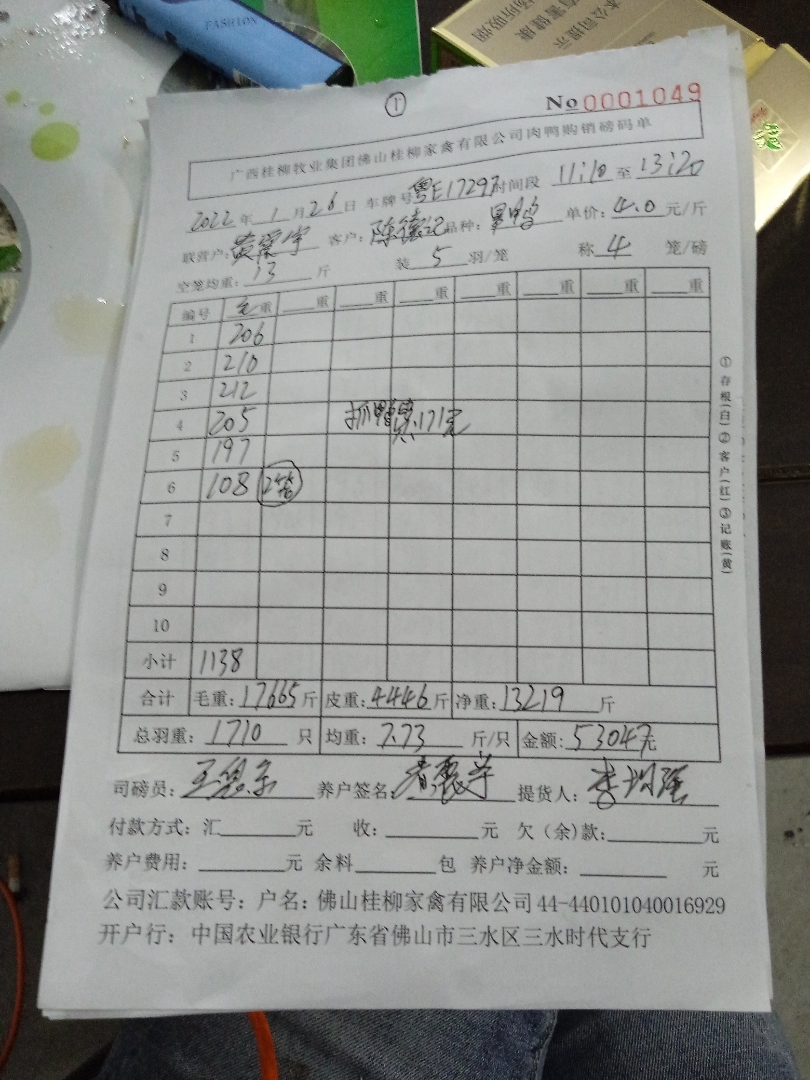 FASHION
本公司提示
①
No 0001049
广西桂柳牧业集团佛山桂柳家禽有限公司肉鸭购销磅码单
2022年 1月26日 车牌号粤E17297时间段 11:10 至 13:20
联营户: 客户: 陈德记 品种: 单价: 4.0 元/斤
空笼均重: 13 斤 装 5 羽/笼 称 4 笼/磅
编号 毛重 重 重 重 重 重 重 重
1 206
2 210
3 212
4 205 抓鸭 171元
5 197
6 108
7
8
9
10
小计 1138
合计 毛重: 17665 斤 皮重: 4446 斤 净重: 13219 斤
总羽重: 1710 只 均重: 7.73 斤/只 金额: 53047元
司磅员: 养户签名: 提货人: 李均强
付款方式: 汇 元 收: 元 欠(余)款: 元
养户费用: 元 余料 包 养户净金额: 元
公司汇款账号: 户名: 佛山桂柳家禽有限公司 44-440101040016929
开户行: 中国农业银行广东省佛山市三水区三水时代支行
①存根(白)②客户(红)③记账(黄)